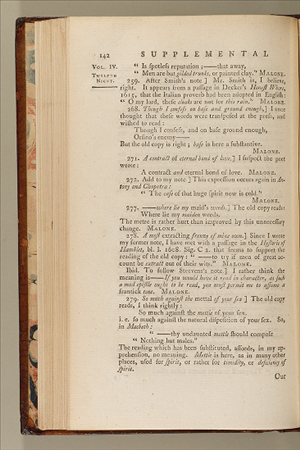 142 SUPPLEMENTAL
VOL. IV. " Is spotless reputation; ——that away,
TWELFTH " Men are but gilded trunks, or painted clay." MALONE.
NIGHT. 259. After Smith's note] Mr. Smith is, I believe,
right. It appears from a passage in Decker's Honest Whore,
1615, that the Italian proverb had been adopted in English:
" O my lord, these cloaks are not for this rain." MALONE.
268. Though I confess, on base and ground enough,] I once
thought that these words were transposed at the press, and
wished to read:
Though I confess, and on base ground enough,
Orsino's enemy——
But the old copy is right; base is here a substantive.
MALONE.
271. A contract of eternal bond of love.] I suspect the poet
wrote:
A contract and eternal bond of love. MALONE.
272. Add to my note] This expression occurs again in An-
tony and Cleopatra:
" The case of that huge spirit now is cold."
MALONE.
277. ——where lie my maid's weeds.] The old copy reads
Where lie my maiden weeds.
The metre is rather hurt than improved by this unnecessary
change. MALONE.
278. A most extracting frenzy of mine own.] Since I wrote
my former note, I have met with a passage in the Historie of
Hamblet, bl. l. 1608. Sig. C 2. that seems to support the
reading of the old copy: " —— to try if men of great ac-
count be extract out of their wits." MALONE.
Ibid. To follow Steevens's note.] I rather think the
meaning is—If you would have it read in character, as such
a mad epistle ought to be read, you must permit me to assume a
frantick tone. MALONE.
279. So much against the mettal of your sex] The old copy
reads, I think rightly:
So much against the mettle of your sex.
i. e. so much against the natural disposition of your sex. So,
in Macbeth:
" ——thy undaunted mettle should compose
" Nothing but males."
The reading which has been substituted, affords, in my ap-
prehension, no meaning. Mettle is here, as in many other
places, used for spirit, or rather for timidity, or deficiency of
spirit.
Our